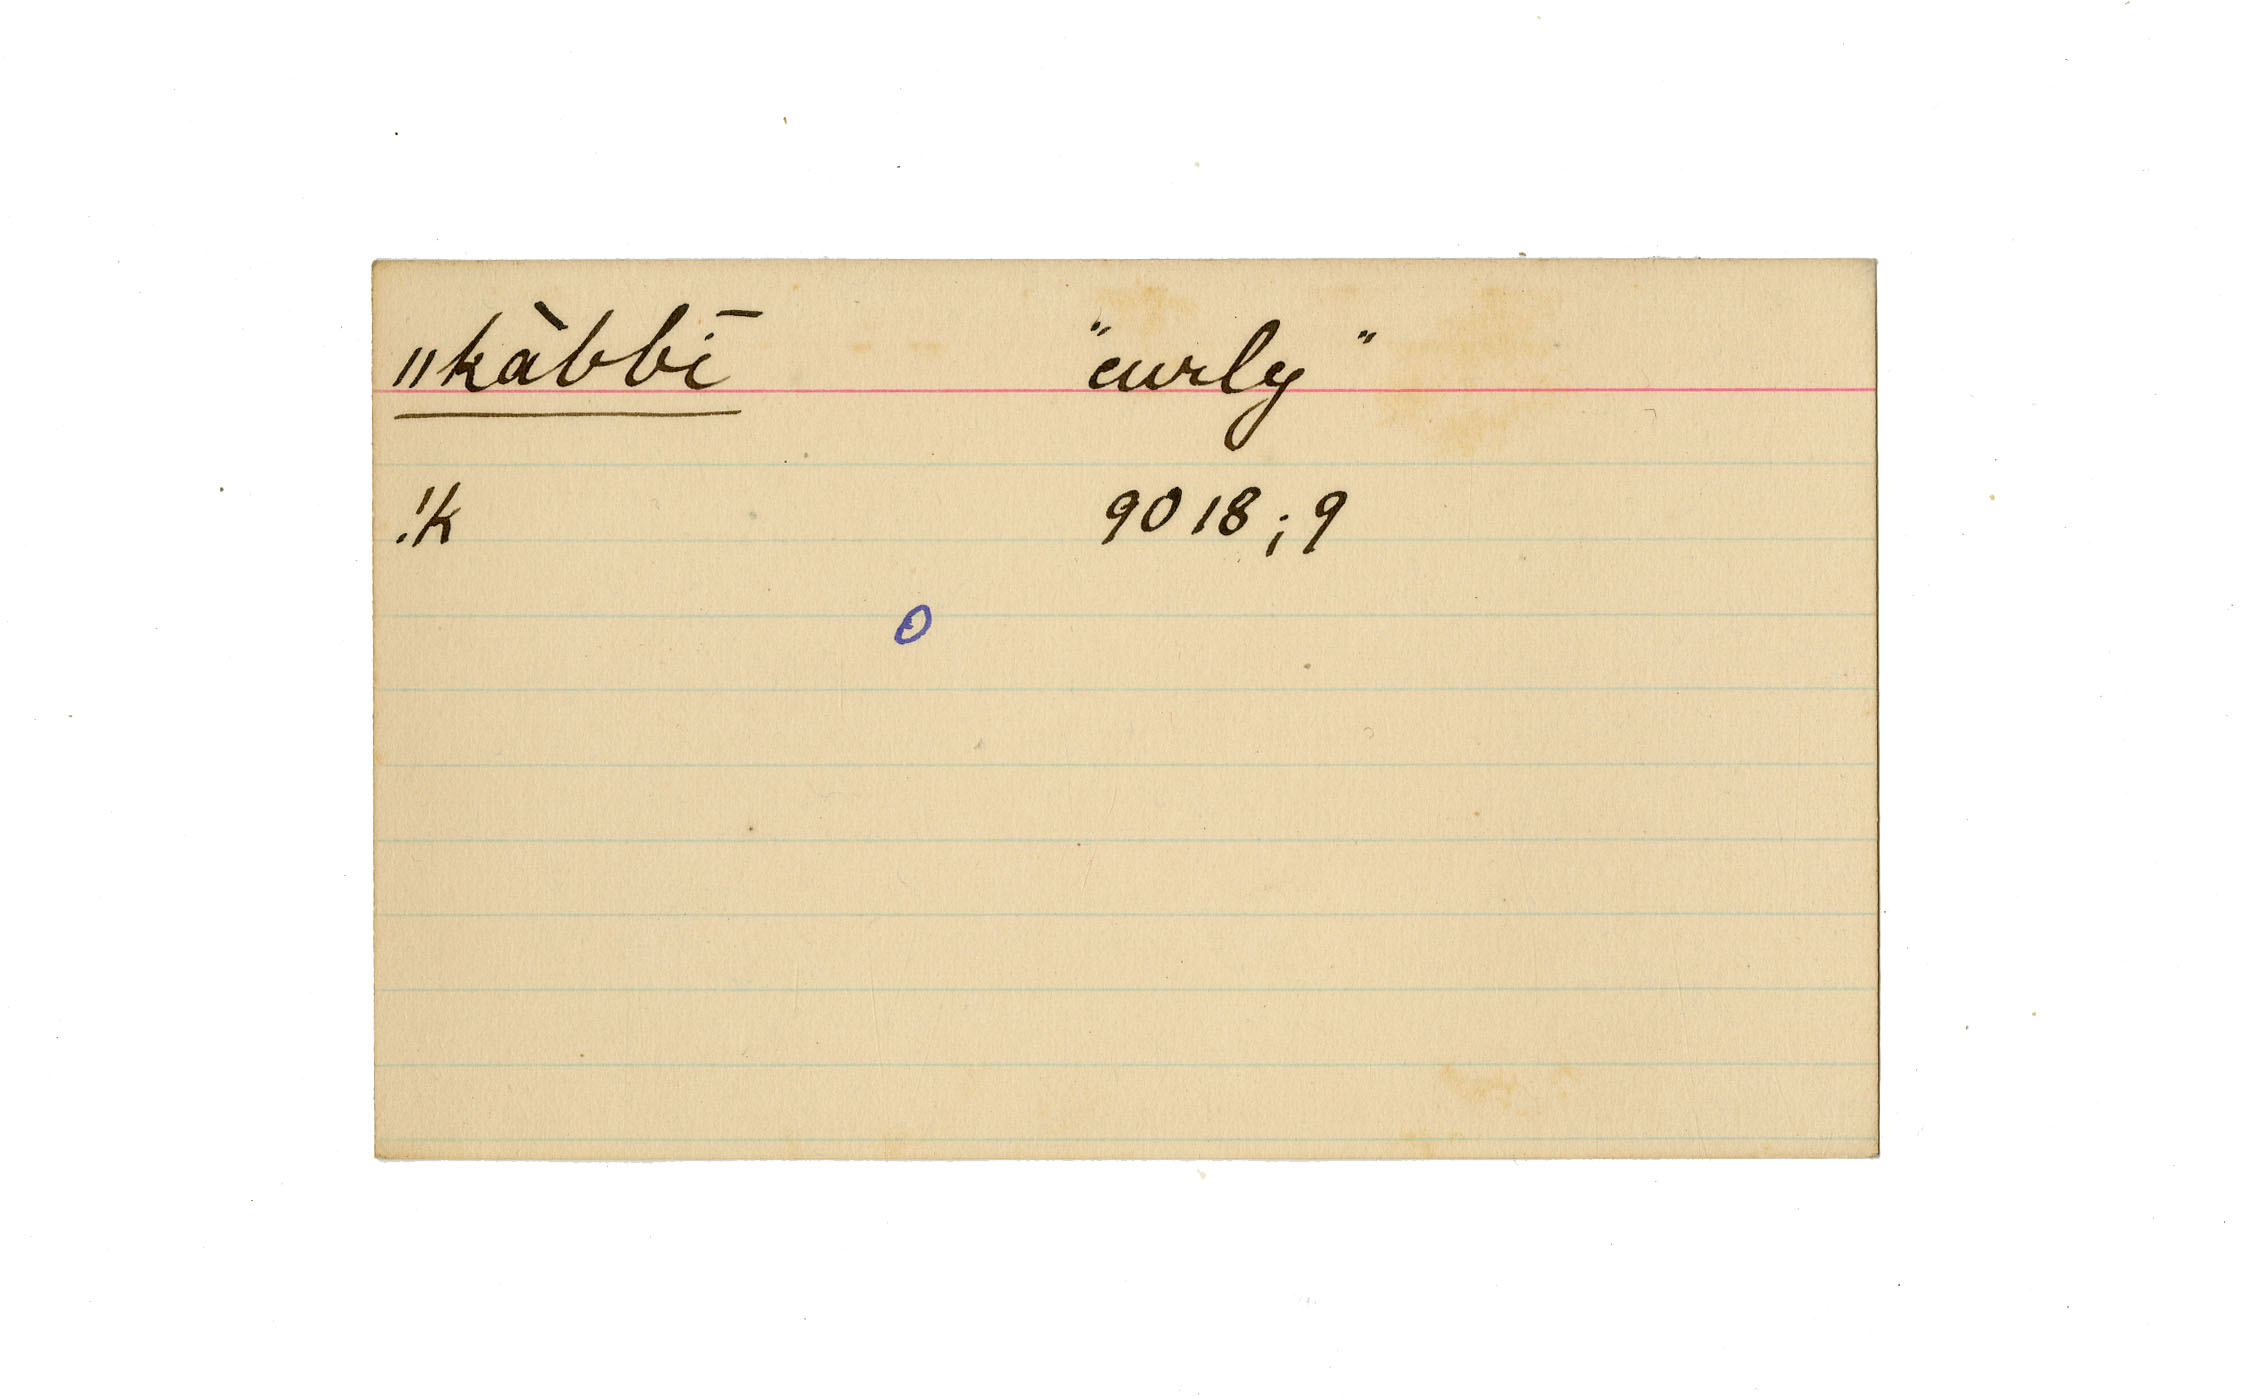 ǁkàbbī "curly"
!k 9018; 9
o